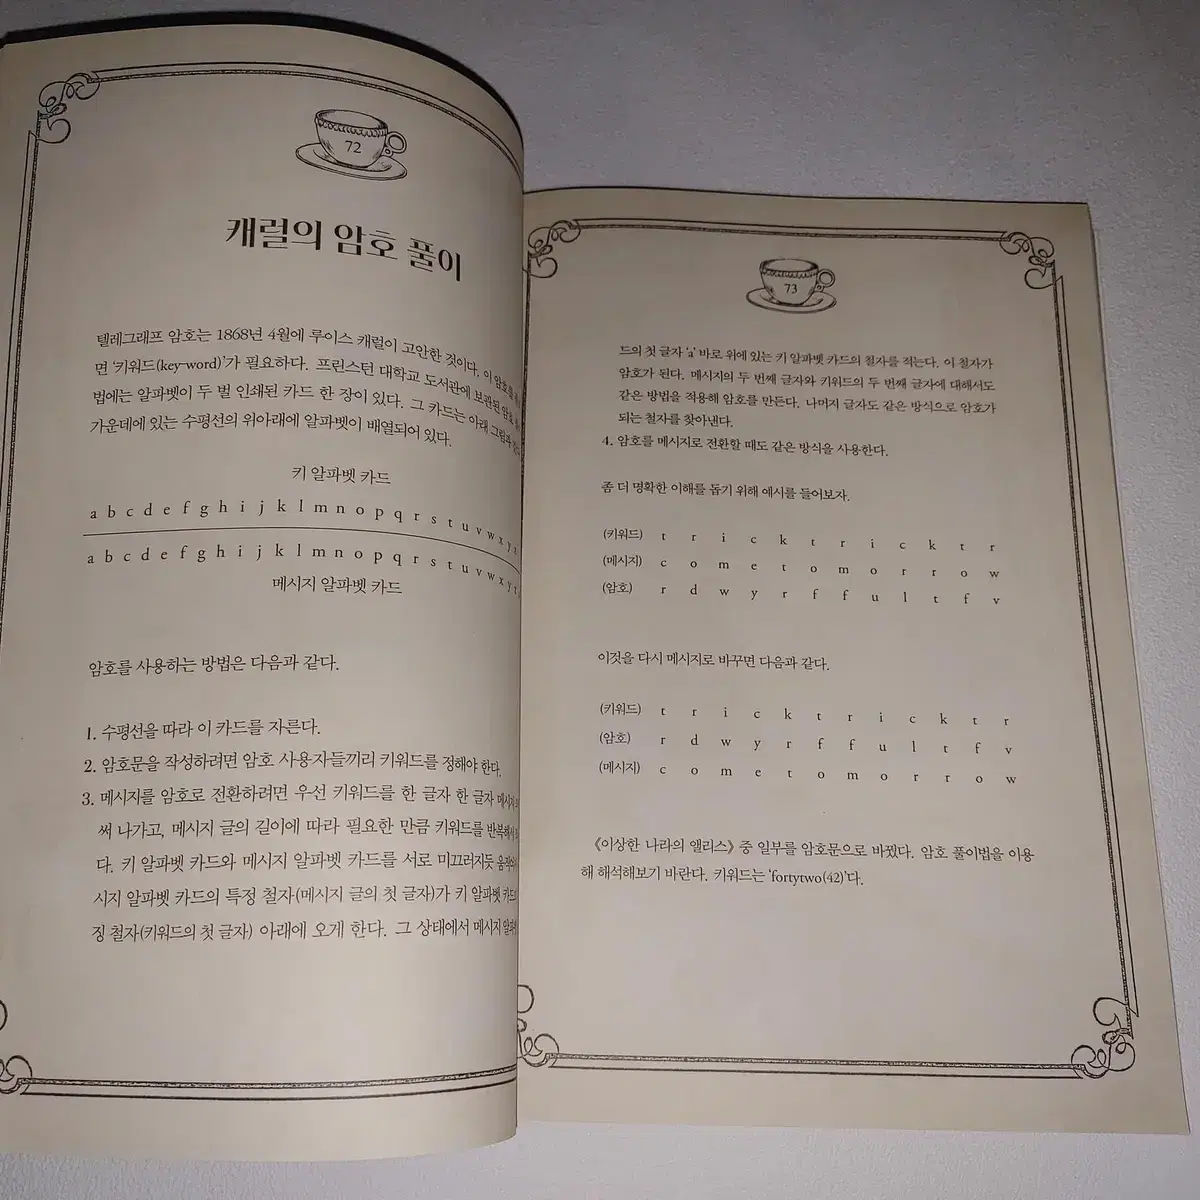 72
캐럴의 암호 풀이
텔레그래프 암호는 1868년 4월에 루이스 캐럴이 고안한 것이다. 이 암호를
면 '키워드(key-word)'가 필요하다. 프린스턴 대학교 도서관에 보관된 암호
법에는 알파벳이 두 벌 인쇄된 카드 한 장이 있다. 그 카드는 아래 그림과
가운데에 있는 수평선의 위아래에 알파벳이 배열되어 있다.
키 알파벳 카드
a b c d e f g h i j k l m n o p q r s t u v w x y
a b c d e f g h i j k l m n o p q r s t u v w x y
메시지 알파벳 카드
암호를 사용하는 방법은 다음과 같다.
1. 수평선을 따라 이 카드를 자른다.
2. 암호문을 작성하려면 암호 사용자들끼리 키워드를 정해야 한다.
3. 메시지를 암호로 전환하려면 우선 키워드를 한 글자 한 글자
써 나가고, 메시지 글의 길이에 따라 필요한 만큼 키워드를
다. 키 알파벳 카드와 메시지 알파벳 카드를 서로 미끄러지듯
시지 알파벳 카드의 특정 철자(메시지 글의 첫 글자)가 키 알파벳
징 철자(키워드의 첫 글자) 아래에 오게 한다. 그 상태에서 메시지
73
드의 첫 글자 'a' 바로 위에 있는 키 알파벳 카드의 철자를 적는다. 이 철자가
암호가 된다. 메시지의 두 번째 글자와 키워드의 두 번째 글자에 대해서도
같은 방법을 적용해 암호를 만든다. 나머지 글자도 같은 방식으로 암호가
되는 철자를 찾아낸다.
4. 암호를 메시지로 전환할 때도 같은 방식을 사용한다.
좀 더 명확한 이해를 돕기 위해 예시를 들어보자.
(키워드) t r i c k t r i c k t r
(메시지) c o m e t o m o r r o w
(암호) r d w y r f f u l t f v
이것을 다시 메시지로 바꾸면 다음과 같다.
(키워드) t r i c k t r i c k t r
(암호) r d w y r f f u l t f v
(메시지) c o m e t o m o r r o w
《이상한 나라의 앨리스》 중 일부를 암호문으로 바꿨다. 암호 풀이법을 이용
해 해석해보기 바란다. 키워드는 'fortytwo(42)'다.